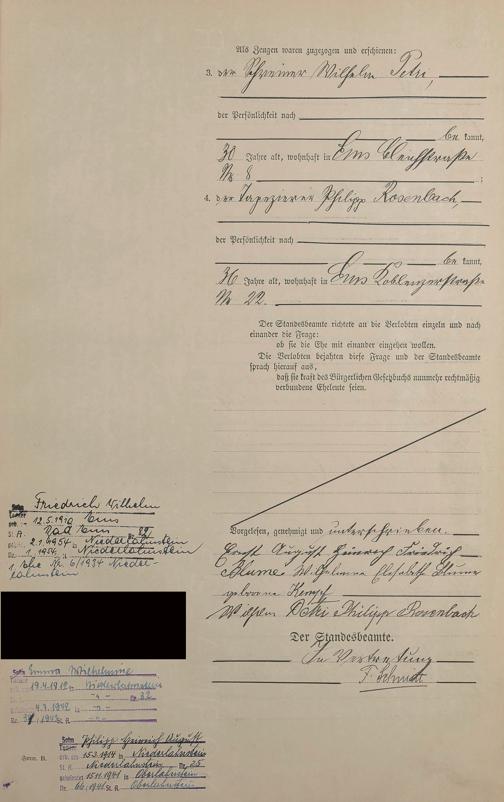 Als Zeugen waren zugezogen und erschienen:
3. der Schreiner Wilhelm Petri,
der Persönlichkeit nach
be kannt,
30 Jahre alt, wohnhaft in Ems Bleichstraße
Nr 8 ;
4. der Tapezierer Philipp Rosenbach,
der Persönlichkeit nach
be kannt,
36 Jahre alt, wohnhaft in Ems Koblenzerstraße
Nr 22.
Der Standesbeamte richtete an die Verlobten einzeln und nach
einander die Frage:
ob sie die Ehe mit einander eingehen wollen.
Die Verlobten bejahten diese Frage und der Standesbeamte
sprach hierauf aus,
daß sie kraft des Bürgerlichen Gesetzbuchs nunmehr rechtmäßig
verbundene Eheleute seien.
Vorgelesen, genehmigt und unterschrieben.
Ernst August Heinrich Friedrich
Blume Wilhelmine Elisabeth Blume
geborene
Wilhelm Petri Philipp Rosenbach
Der Standesbeamte.
In Vertretung
Sohn Friedrich Wilhelm
12.5.1910 Ems
St. A. Bad Ems
2.1.1954 in Niederlahnstein
1, 1954, Niederlahnstein
1. Ehe Nr. 6/1934 Nieder-
lahnstein
Emma Wilhelmine
19.4.1912 in Niederlahnstein
4.3.1942
St. A.
Sohn Philipp Heinrich August
15.3.1914 in Niederlahnstein
St. A. Niederlahnstein Nr. 25
15.11.1941 in Oberlahnstein
Nr. 66/1941 St. A. Oberlahnstein
Form. B.